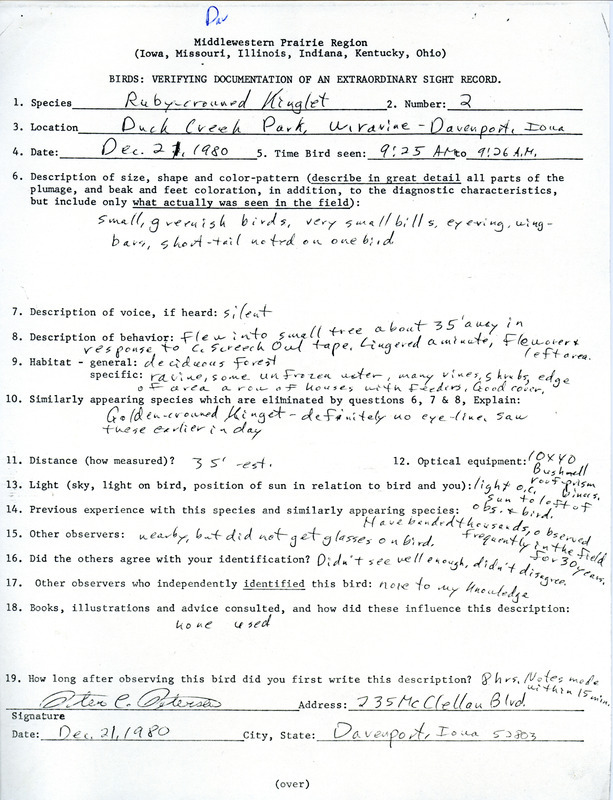 Dav
Middlewestern Prairie Region
(Iowa, Missouri, Illinois, Indiana, Kentucky, Ohio)
BIRDS: VERIFYING DOCUMENTATION OF AN EXTRAORDINARY SIGHT RECORD.
1. Species Ruby-crowned Kinglet 2. Number: 2
3. Location Duck Creek Park, W. ravine - Davenport, Iowa
4. Date: Dec. 21, 1980 5. Time Bird seen: 9:25 AM to 9:26 A.M.
6. Description of size, shape and color-pattern (describe in great detail all parts of the
plumage, and beak and feet coloration, in addition, to the diagnostic characteristics,
but include only what actually was seen in the field):
small, greenish birds, very small bills, eyering, wing-
bars, short-tail noted on one bird
7. Description of voice, if heard: silent
8. Description of behavior: Flew into small tree about 35' away in
response to C. Screech Owl tape. Lingered a minute, flew over &
left area.
9. Habitat - general: deciduous forest
specific: ravine, some unfrozen water, many vines, shrubs, edge
of area a row of houses with feeders, Good cover.
10. Similarly appearing species which are eliminated by questions 6, 7 & 8, Explain:
Golden-crowned Kinget - definitely no eye-line. Saw
these earlier in day
11. Distance (how measured)? 35' -est. 12. Optical equipment: 10X40
Bushnell
roof-prism
binocs.
13. Light (sky, light on bird, position of sun in relation to bird and you): light o.c.
sun to left of
obs. & bird.
14. Previous experience with this species and similarly appearing species:
Have banded thousands, observed
frequently in the field
for 30 years.
15. Other observers: nearby, but did not get glasses on bird.
16. Did the others agree with your identification? Didn't see well enough, didn't disagree.
17. Other observers who independently identified this bird: none to my knowledge
18. Books, illustrations and advice consulted, and how did these influence this description:
none used
19. How long after observing this bird did you first write this description? 8 hrs. Notes made
within 15 min.
Peter C. Petersen Address: 235 McClellan Blvd.
Signature
Date: Dec. 21, 1980 City, State: Davenport, Iowa 52803
(over)